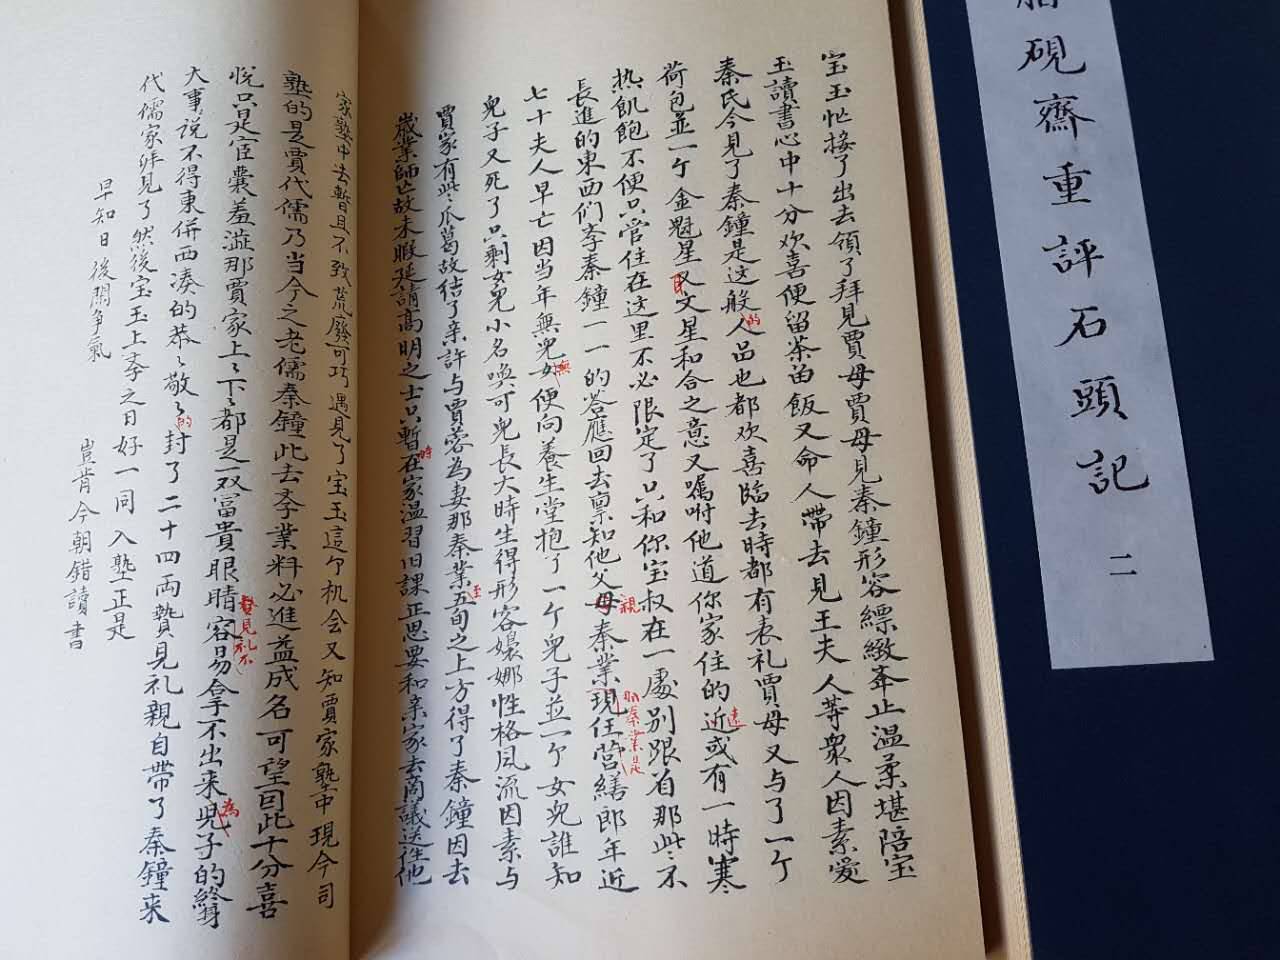 脂硯齋重評石頭記 二
宝玉忙接了出去領了拜見賈母賈母見秦鐘形容縹緻举止温柔堪陪宝
玉讀書心中十分欢喜便留茶留飯又命人帶去見王夫人等衆人因素愛
秦氏今見了秦鐘是这般人品也都欢喜臨去時都有表礼賈母又与了一个
的
荷包並一个金魁星又文星和合之意又嘱咐他道你家住的近或有一時寒
取
遠
热飢飽不便只管住在这里不必限定了只和你宝叔在一處別跟着那些不
長進的東西们李秦鐘一一的答應回去禀知他父母秦業現任营繕郎年近
親
那秦業是
七十夫人早亡因当年無兒女便向養生堂抱了一个兒子並一个女兒誰知
無
兒子又死了只剩女兒小名唤可兒長大時生得形容嬝娜性格风流因素与
賈家有些瓜葛故结了亲許与賈蓉為妻那秦業五旬之上方得了秦鐘因去
至
歲業師亡故未暇延請高明之士只暫在家温習旧課正思要和亲家去商議送往他
時
家塾中去暫且不致荒廢可巧遇見了宝玉這个机会又知賈家塾中現今司
塾的是賈代儒乃当今之老儒秦鐘此去李業料必進益成名可望因此十分喜
悅只是宦囊羞澁那賈家上〻下〻都是一双富貴眼睛容易拿不出来兒子的終身
贄見礼不
為
大事說不得東併西凑的恭〻敬〻封了二十四両贄見礼親自帶了秦鐘来
的
代儒家拜見了然後宝玉上李之日好一同入塾正是
早知日後閑争氣 豈肯今朝錯讀書